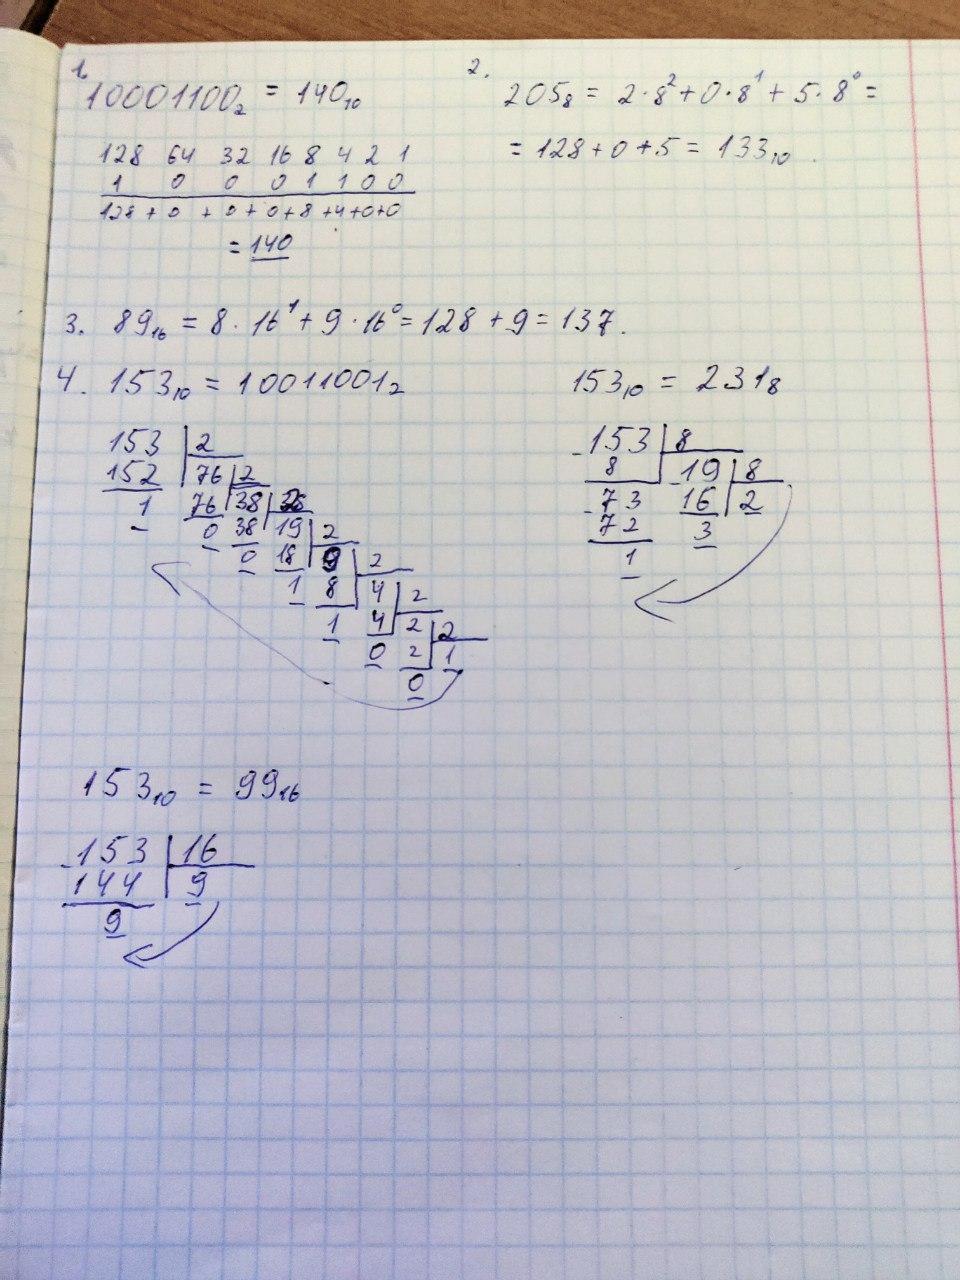 1.
10001100₂ = 140₁₀
128 64 32 16 8 4 2 1
1 0 0 0 1 1 0 0
128 + 0 + 0 + 0 + 8 + 4 + 0 + 0
= 140
2.
205₈ = 2·8² + 0·8¹ + 5·8⁰ =
= 128 + 0 + 5 = 133₁₀.
3. 89₁₆ = 8·16¹ + 9·16⁰ = 128 + 9 = 137.
4. 153₁₀ = 10011001₂
153 2
152 76 2
1 76 38
0 38 19 2
0 18 9 2
1 8 4 2
1 4 2 2
0 2 1
0
153₁₀ = 231₈
-153 8
8 -19 8
-73 16 2
72 3
1
153₁₀ = 99₁₆
-153 16
144 9
9